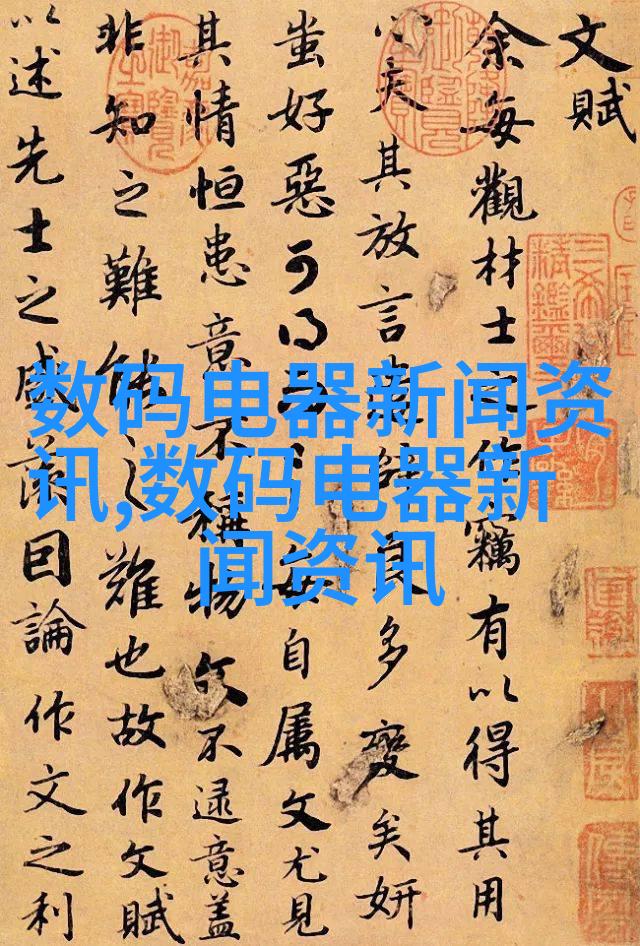 文賦
余每觀材士之作竊有以得其用
心夫其放言遣辭良多變矣妍
蚩好惡可得而言每自属文尤見
其情恒患意不稱物文不逮意蓋
非知之難能之難也故作文賦
以述先士之盛藻因論作文之利
数码电器新闻资
讯,数码电器新
闻资讯